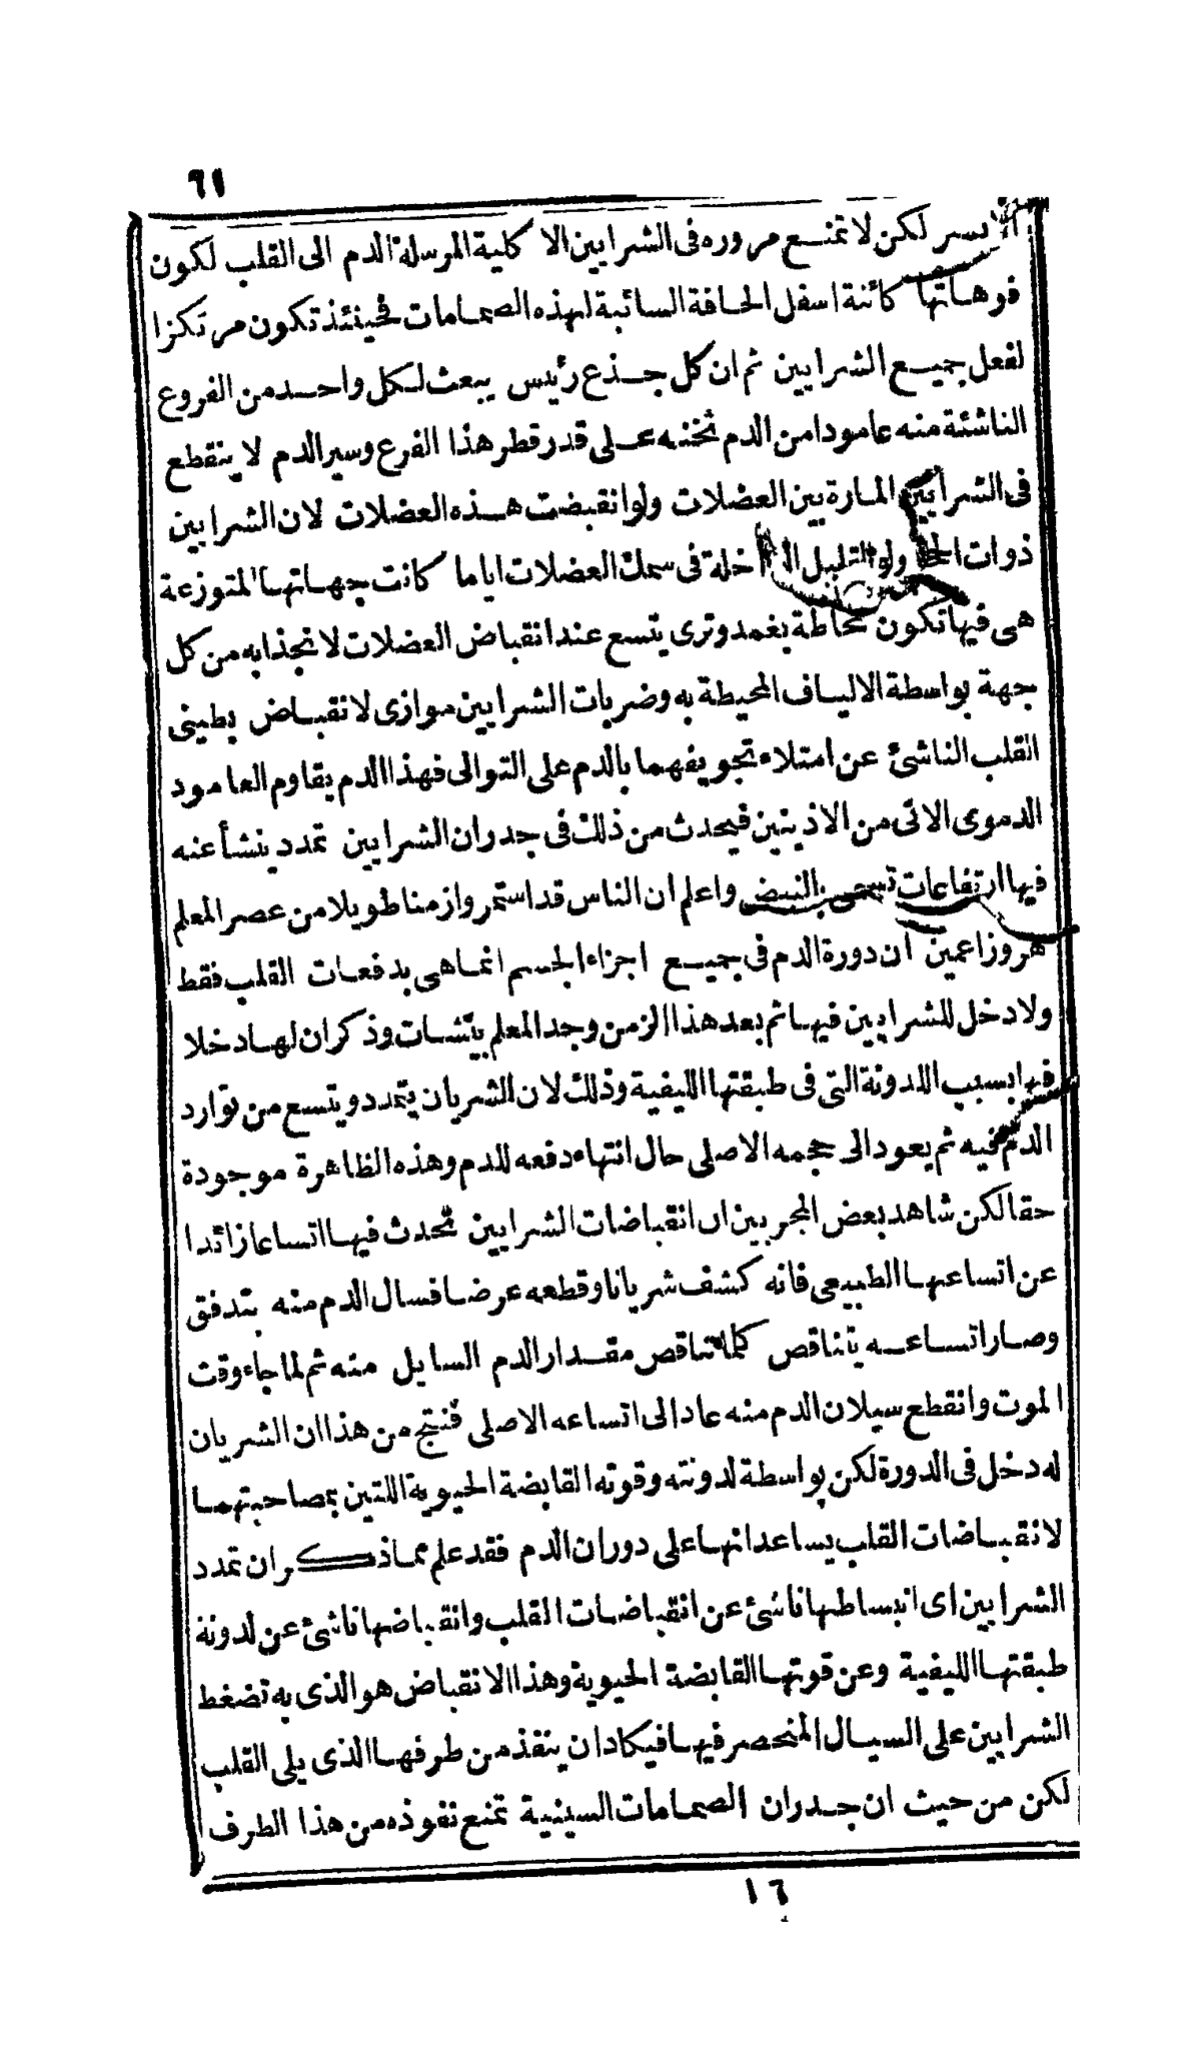 ٦١
الايسر لكن لا تمنع مروره فى الشرايين الاكليلية المرسلة الدم الى القلب لكون
فوهاتها كائنة اسفل الحافة السائبة لهذه الصمامات فحينئذ تكون مرتكزا
لفعل جميع الشرايين ثم ان كل جذع رئيس يبعث لكل واحد من الفروع
الناشئة منه عامودا من الدم ثخنه على قدر قطر هذا الفرع وسير الدم لا ينقطع
فى الشرايين المارة بين العضلات ولو انقبضت هذه العضلات لان الشرايين
ذوات ولو القليل الداخلة فى سمك العضلات اياما كانت جهاتها المتوزعة
هى فيها تكون محاطة بغمد وترى يتسع عند انقباض العضلات لانجذابه من كل
جهة بواسطة الالياف المحيطة به وضربات الشرايين موازى لانقباض بطينى
القلب الناشئ عن امتلاء تجويفهما بالدم على التوالى فهذا الدم يقاوم العامود
الدموى الاتى من الاذينتين فيحدث من ذلك فى جدران الشرايين تمدد ينشأ عنه
فيها ارتفاعات تسمى بالنبض واعلم ان الناس قد استمروا زمنا طويلا من عصر المعلم
هرو زاعمين ان دورة الدم فى جميع اجزاء الجسم انما هى بدفعات القلب فقط
ولا دخل للشرايين فيها ثم بعد هذا الزمن وجد المعلم بيتشات وذكر ان لها دخلا
فيها بسبب اللدونة التى فى طبقتها الليفية وذلك لان الشريان يتمدد ويتسع من توارد
الدم فيه ثم يعود الى حجمه الاصلى حال انتهاء دفعه للدم وهذه الظاهرة موجودة
حقا لكن شاهد بعض المجربين ان انقباضات الشرايين تحدث فيها اتساعا زائدا
عن اتساعها الطبيعى فانه كشف شريانا وقطعه عرضا فسال الدم منه بتدفق
وصار اتساعه يتناقص كلما تناقص مقدار الدم السايل منه ثم لما جاء وقت
الموت وانقطع سيلان الدم منه عاد الى اتساعه الاصلى فنتج من هذا ان الشريان
له دخل فى الدورة لكن بواسطة لدونته وقوته القابضة الحيوية اللتين بمصاحبتهما
لانقباضات القلب يساعدانها على دوران الدم فقد علم مما ذكر ان تمدد
الشرايين اى انبساطها ناشئ عن انقباضات القلب وانقباضها ناشئ عن لدونة
طبقتها الليفية وعن قوتها القابضة الحيوية وهذا الانقباض هو الذى به تضغط
الشرايين على السيال المنحصر فيها فيكاد ان ينفذ من طرفها الذى يلى القلب
لكن من حيث ان جدران الصمامات السينية تمنع نفوذه من هذا الطرف
١٦